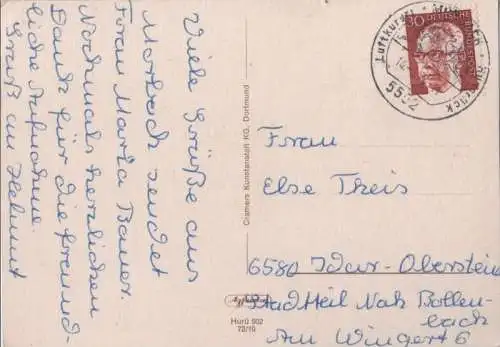 Viele Grüße aus
Morbach sendet
Frau Maria Bauer.
Nochmals herzlichen
Dank für die freund-
liche Aufnahme.
Gruß an Helmut
Cramers Kunstanstalt KG, Dortmund
30
DEUTSCHE BUNDESPOST
Luftkurort - Morbach - Hunsrück
5552
Frau
Else Theis
6580 Idar-Oberstein
Stadtteil Nah Bollen-
bach
Am Wingert 6
Hurü 902
73/10